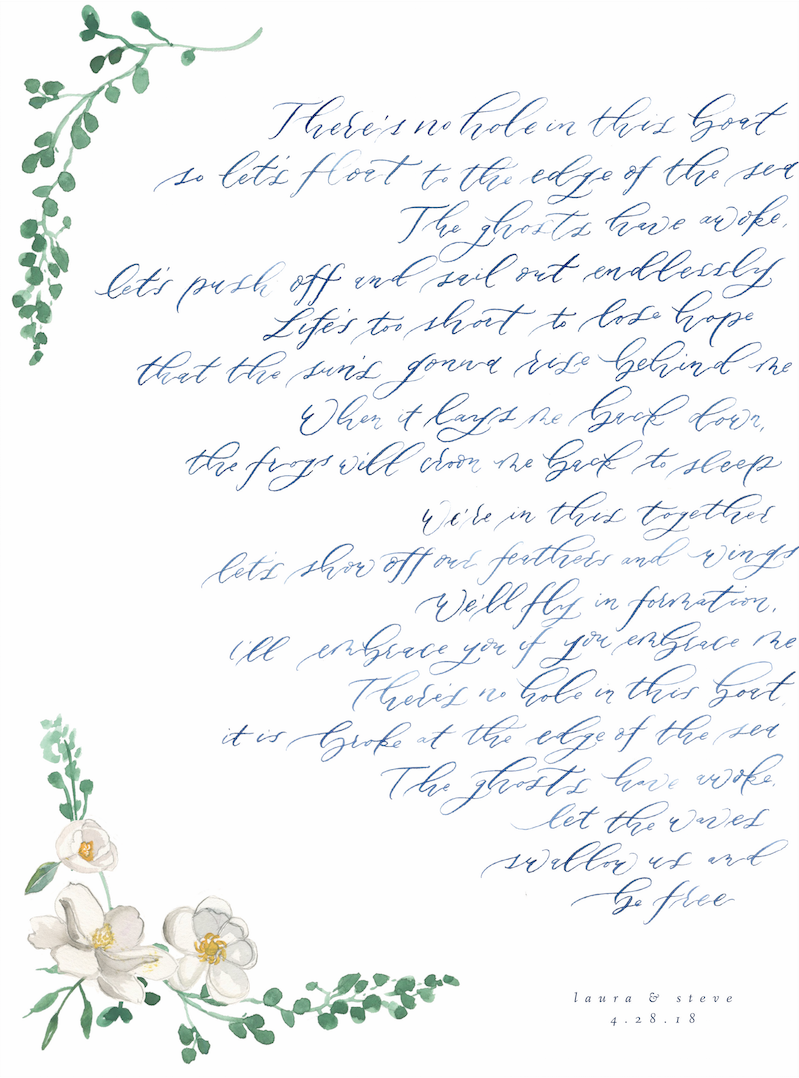 There's no hole in this boat
so let's float to the edge of the sea
The ghosts have awoke,
let's push off and sail out endlessly
Life's too short to lose hope
that the sun's gonna rise behind me
When it lays me back down,
the frogs will croon me back to sleep
We're in this together
let's show off our feathers and wings
We'll fly in formation,
i'll embrace you if you embrace me
There's no hole in this boat,
it is broke at the edge of the sea
The ghosts have awoke,
let the waves
swallow us and
be free
laura & steve
4.28.18